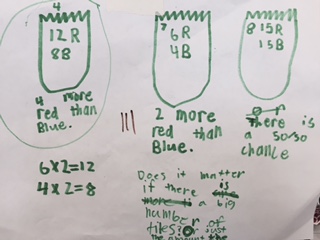 4
12 R
8B
4 more
red than
Blue.
6x2=12
4x2=8
7
6R
4B
2 more
red than
Blue.
Does it matter
if there is
more is a big
number of
tiles? Or just
the amount the
8
15R
15B
There is
a so/so
chance